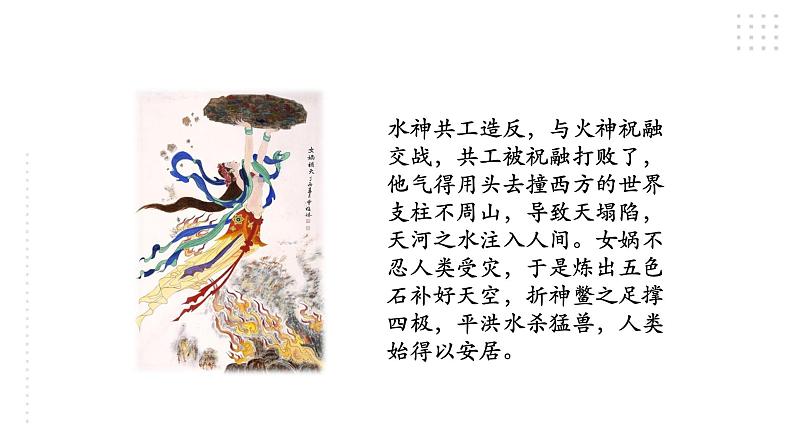 女娲补天
水神共工造反，与火神祝融
交战，共工被祝融打败了，
他气得用头去撞西方的世界
支柱不周山，导致天塌陷，
天河之水注入人间。女娲不
忍人类受灾，于是炼出五色
石补好天空，折神鳖之足撑
四极，平洪水杀猛兽，人类
始得以安居。